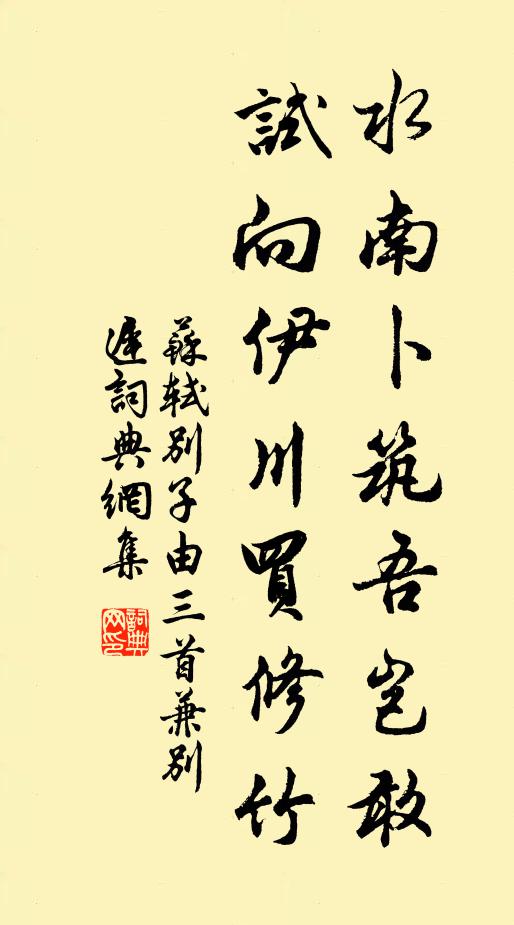 水南卜筑吾岂敢
試向伊川買修竹
蘇軾別子由三首兼別
遲詞典網集
詞典網印